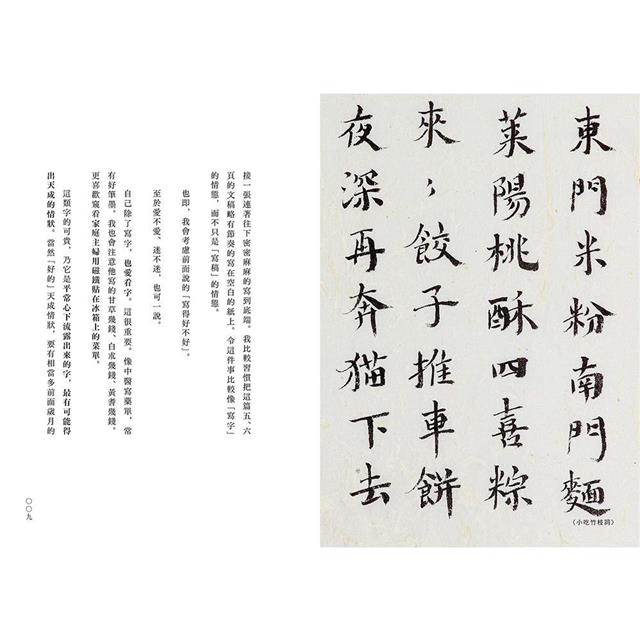 東門米粉南門麵
萊陽桃酥四喜粽
來〻餃子推車餅
夜深再奔貓下去
〈小吃竹枝詞〉
接一張連著往下密密麻麻的寫到底端。我比較習慣把這篇五、六
頁的文稿略有節奏的寫在空白的紙上。令這件事比較像「寫字」
的情態，而不只是「寫稿」的情態。
也即，我會考慮前面說的「寫得好不好」。
至於愛不愛、迷不迷，也可一說。
自己除了寫字，也愛看字。這很重要。像中醫寫藥單，常
有好筆墨。我也會注意他寫的甘草幾錢、白朮幾錢、黃耆幾錢。
更喜歡窺看家庭主婦用磁鐵貼在冰箱上的菜單。
這類字的可貴，乃它是平常心下流露出來的字，最有可能得
出天成的情狀。當然「好的」天成情狀，要有相當多前面歲月的
〇〇九